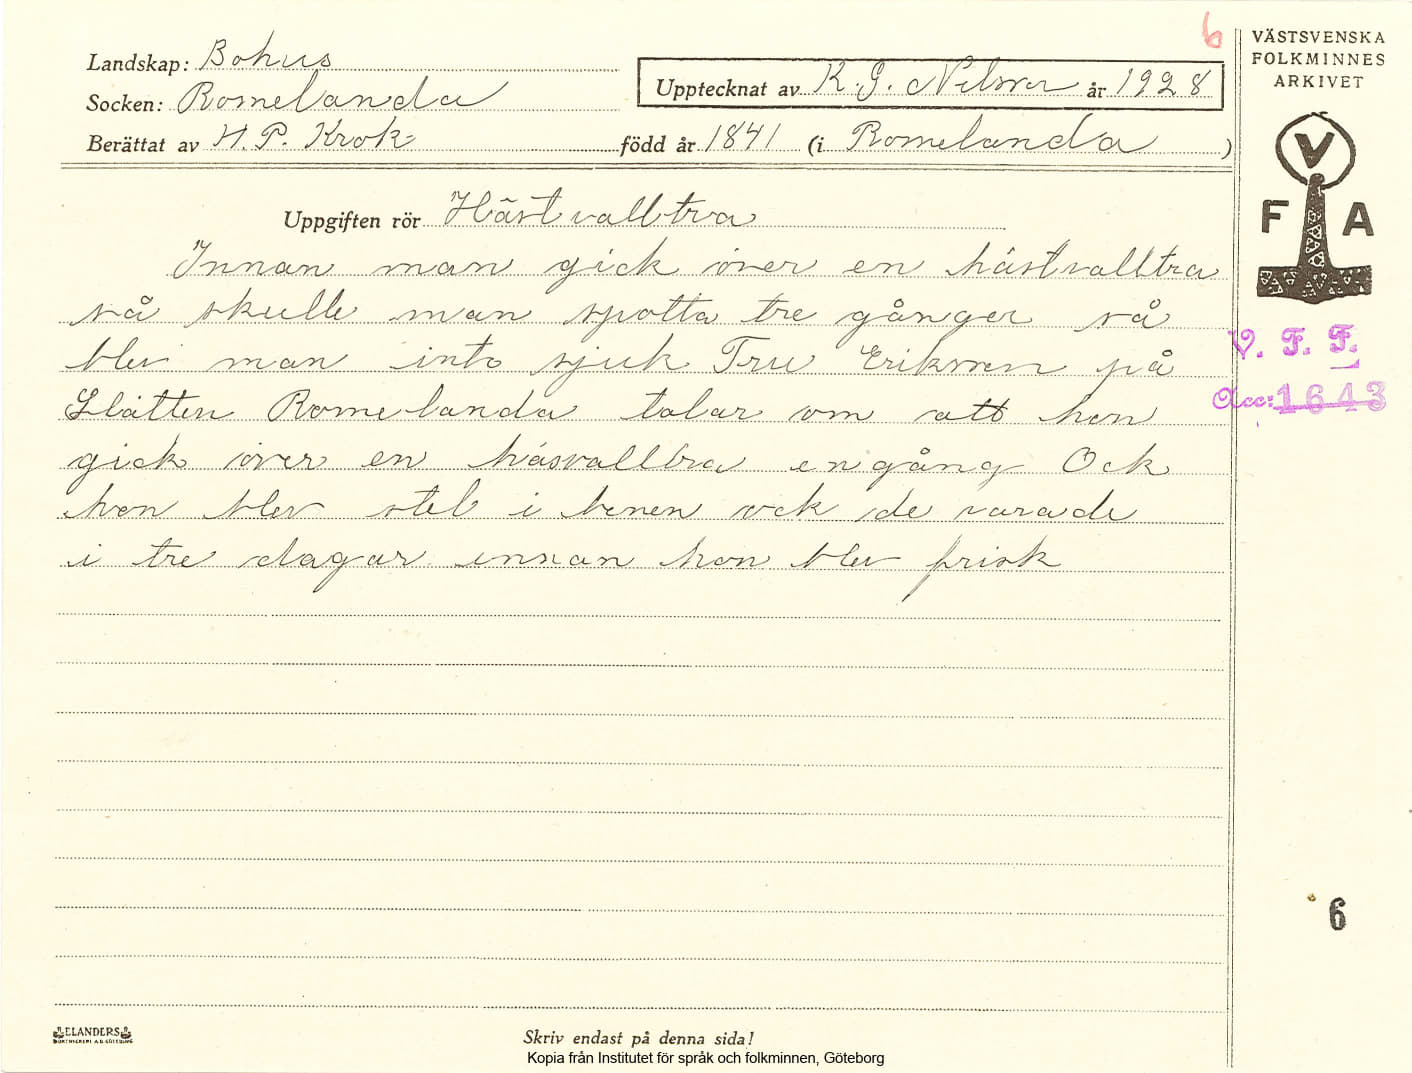 6
Landskap: Bohus
Socken: Romelanda
Upptecknat av K. G. Nilson år 1928
Berättat av H. P. Krok född år 1841 (i Romelanda)
VÄSTSVENSKA
FOLKMINNES
ARKIVET
V
F A
Uppgiften rör Hästvalltra
Innan man gick över en hästvalltra
så skulle man spotta tre gånger så
blev man inte sjuk Fru Erikson på
Slätten Romelanda talar om att hon
gick över en häsvalltra en gång Ock
hon blev stel i benen ock de varade
i tre dagar innan hon blev frisk
V. F. F.
Acc: 1643
6
ELANDERS
BOKTRYCKERI A.B. GÖTEBORG
Skriv endast på denna sida!
Kopia från Institutet för språk och folkminnen, Göteborg